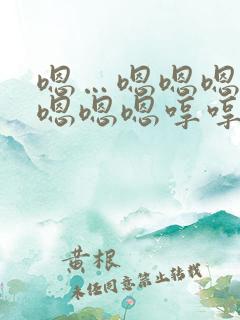 嗯…嗯嗯嗯
嗯嗯嗯哼哼
黄根
未经同意禁止转载